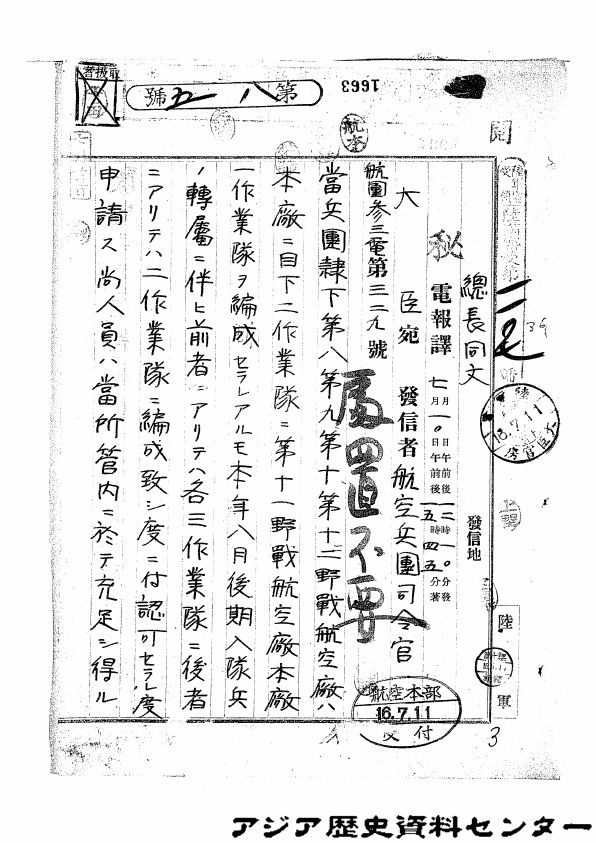 取扱者
第八五號
1663
閲
航空
秘
電報譯
總長同文
七月一〇日午前後一二時一〇分發
七月一〇日午前後一五時四五分著
發信地
大臣宛 發信者航空兵團司令官
航團參三電第三二九號
處置不要
當兵團隷下第八第九第十第十二野戰航空廠ハ
本廠ニ目下二作業隊ニ第十一野戰航空廠本廠
一作業隊ヲ編成セラレアルモ本年八月後期入隊兵
ノ轉屬ニ伴ヒ前者ニアリテハ各三作業隊ニ後者
ニアリテハ二作業隊ニ編成致シ度ニ付認可セラレ度
申請ス尚人員ハ當所管内ニ於テ充足シ得ル
16.7.11
大臣官房
陸軍
航空本部
16.7.11
交付
3
アジア歴史資料センター